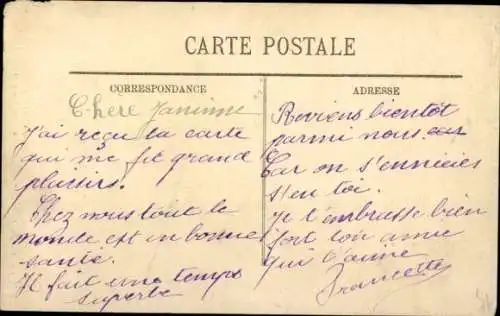 CARTE POSTALE
CORRESPONDANCE
Chere Janinne
J'ai reçu ta carte
qui m'e fit grand
plaisirs.
Chez nous tout le
monde est en bonne
santé.
Il fait une temps
superbe
ADRESSE
Reviens bientôt
parmi nous
Car on s'ennicies
s'en toi.
Je t'embrasse bien
fort ton amie
qui t'aime
Francette